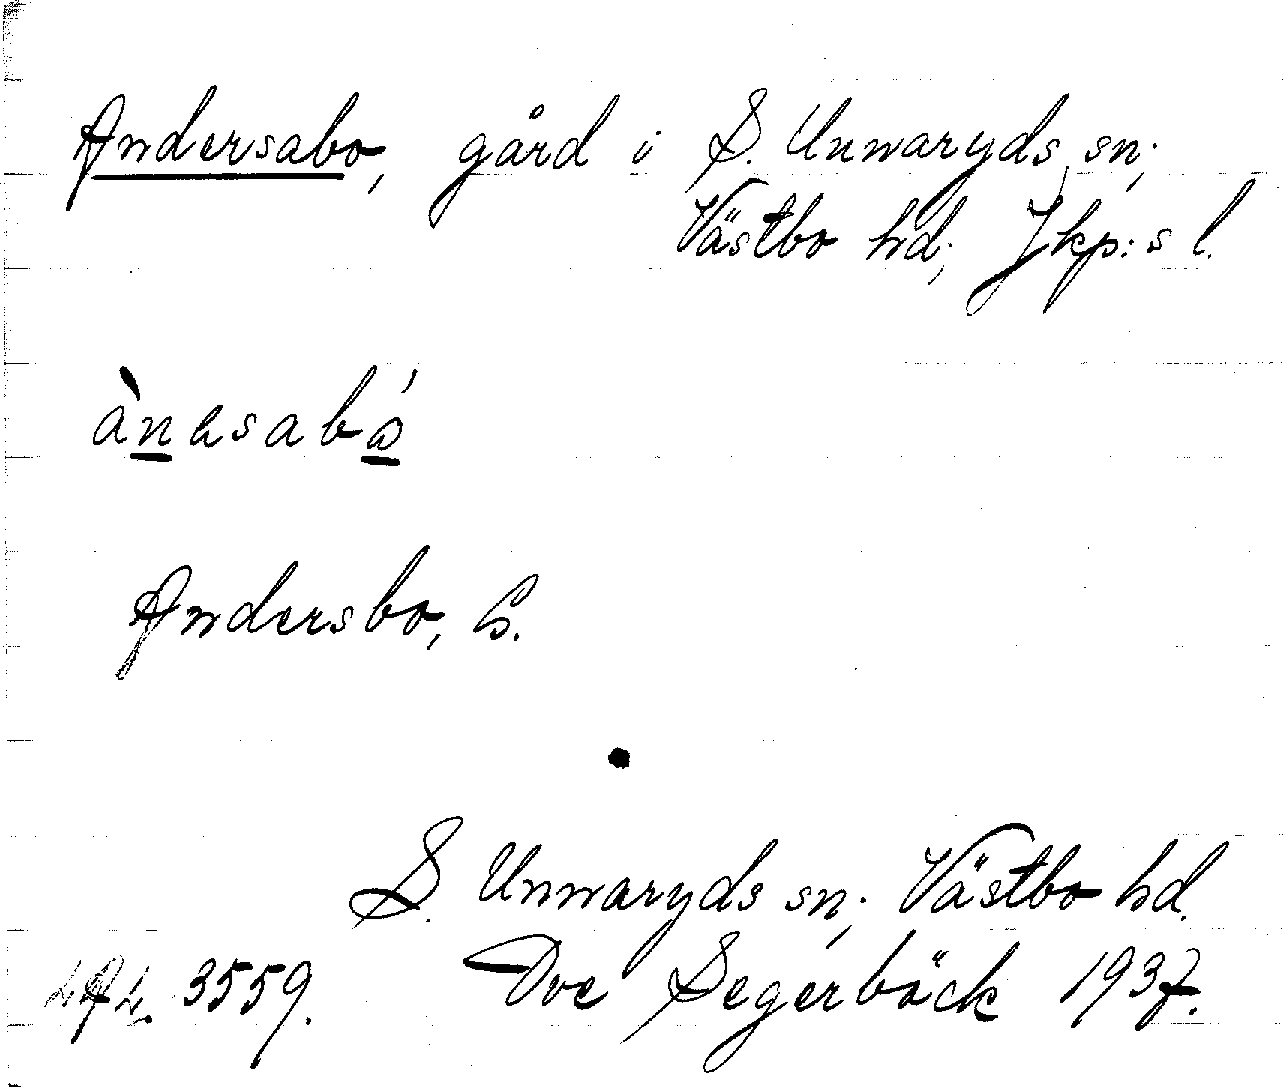 Andersabo, gård i S. Unnaryds sn;
Västbo hd; Jkp:s l.
Andersbo, G.
S. Unnaryds sn; Västbo hd.
3559. Ove Segerbäck 1937.